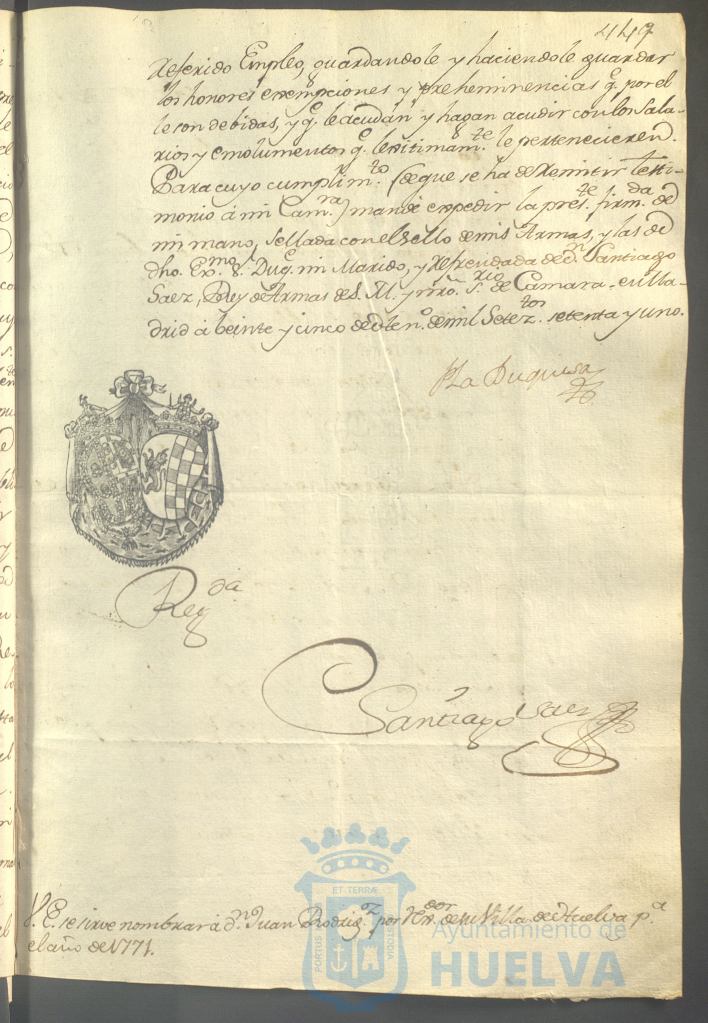 449
referido Empleo, guardandole y haciendole guardar
los honores exempciones y preheminencias q.e por el
le son debidas, y q.e le acudan y hagan acudir con los Sala-
rios y emolumentos q.e lexitimam.te le pertenecieren.
Para cuyo cumplim.to (de que se ha de remitir testi-
monio á mi Cam.ra) mandé expedir la pres.te firm.da de
mi mano, sellada con el sello de mis Armas, y las de
dho. Ex.mo S.r Duq.e mi Marido, y refrendada de d.n Santiago
Saez, Rey de Armas de S. M. y nro. S.rio de Camara. en Ma-
drid á beinte y cinco de de mil Setez.tos setenta y uno.
La Duquesa
Reg.da
Santiago Saez
V. E. se sirve nombrar á d.n Juan Rodrig.z por de su Villa de Huelva p.a
el año de 1771.
ET TERRÆ
PORTUS
CUSTODIA
Ayuntamiento de
HUELVA